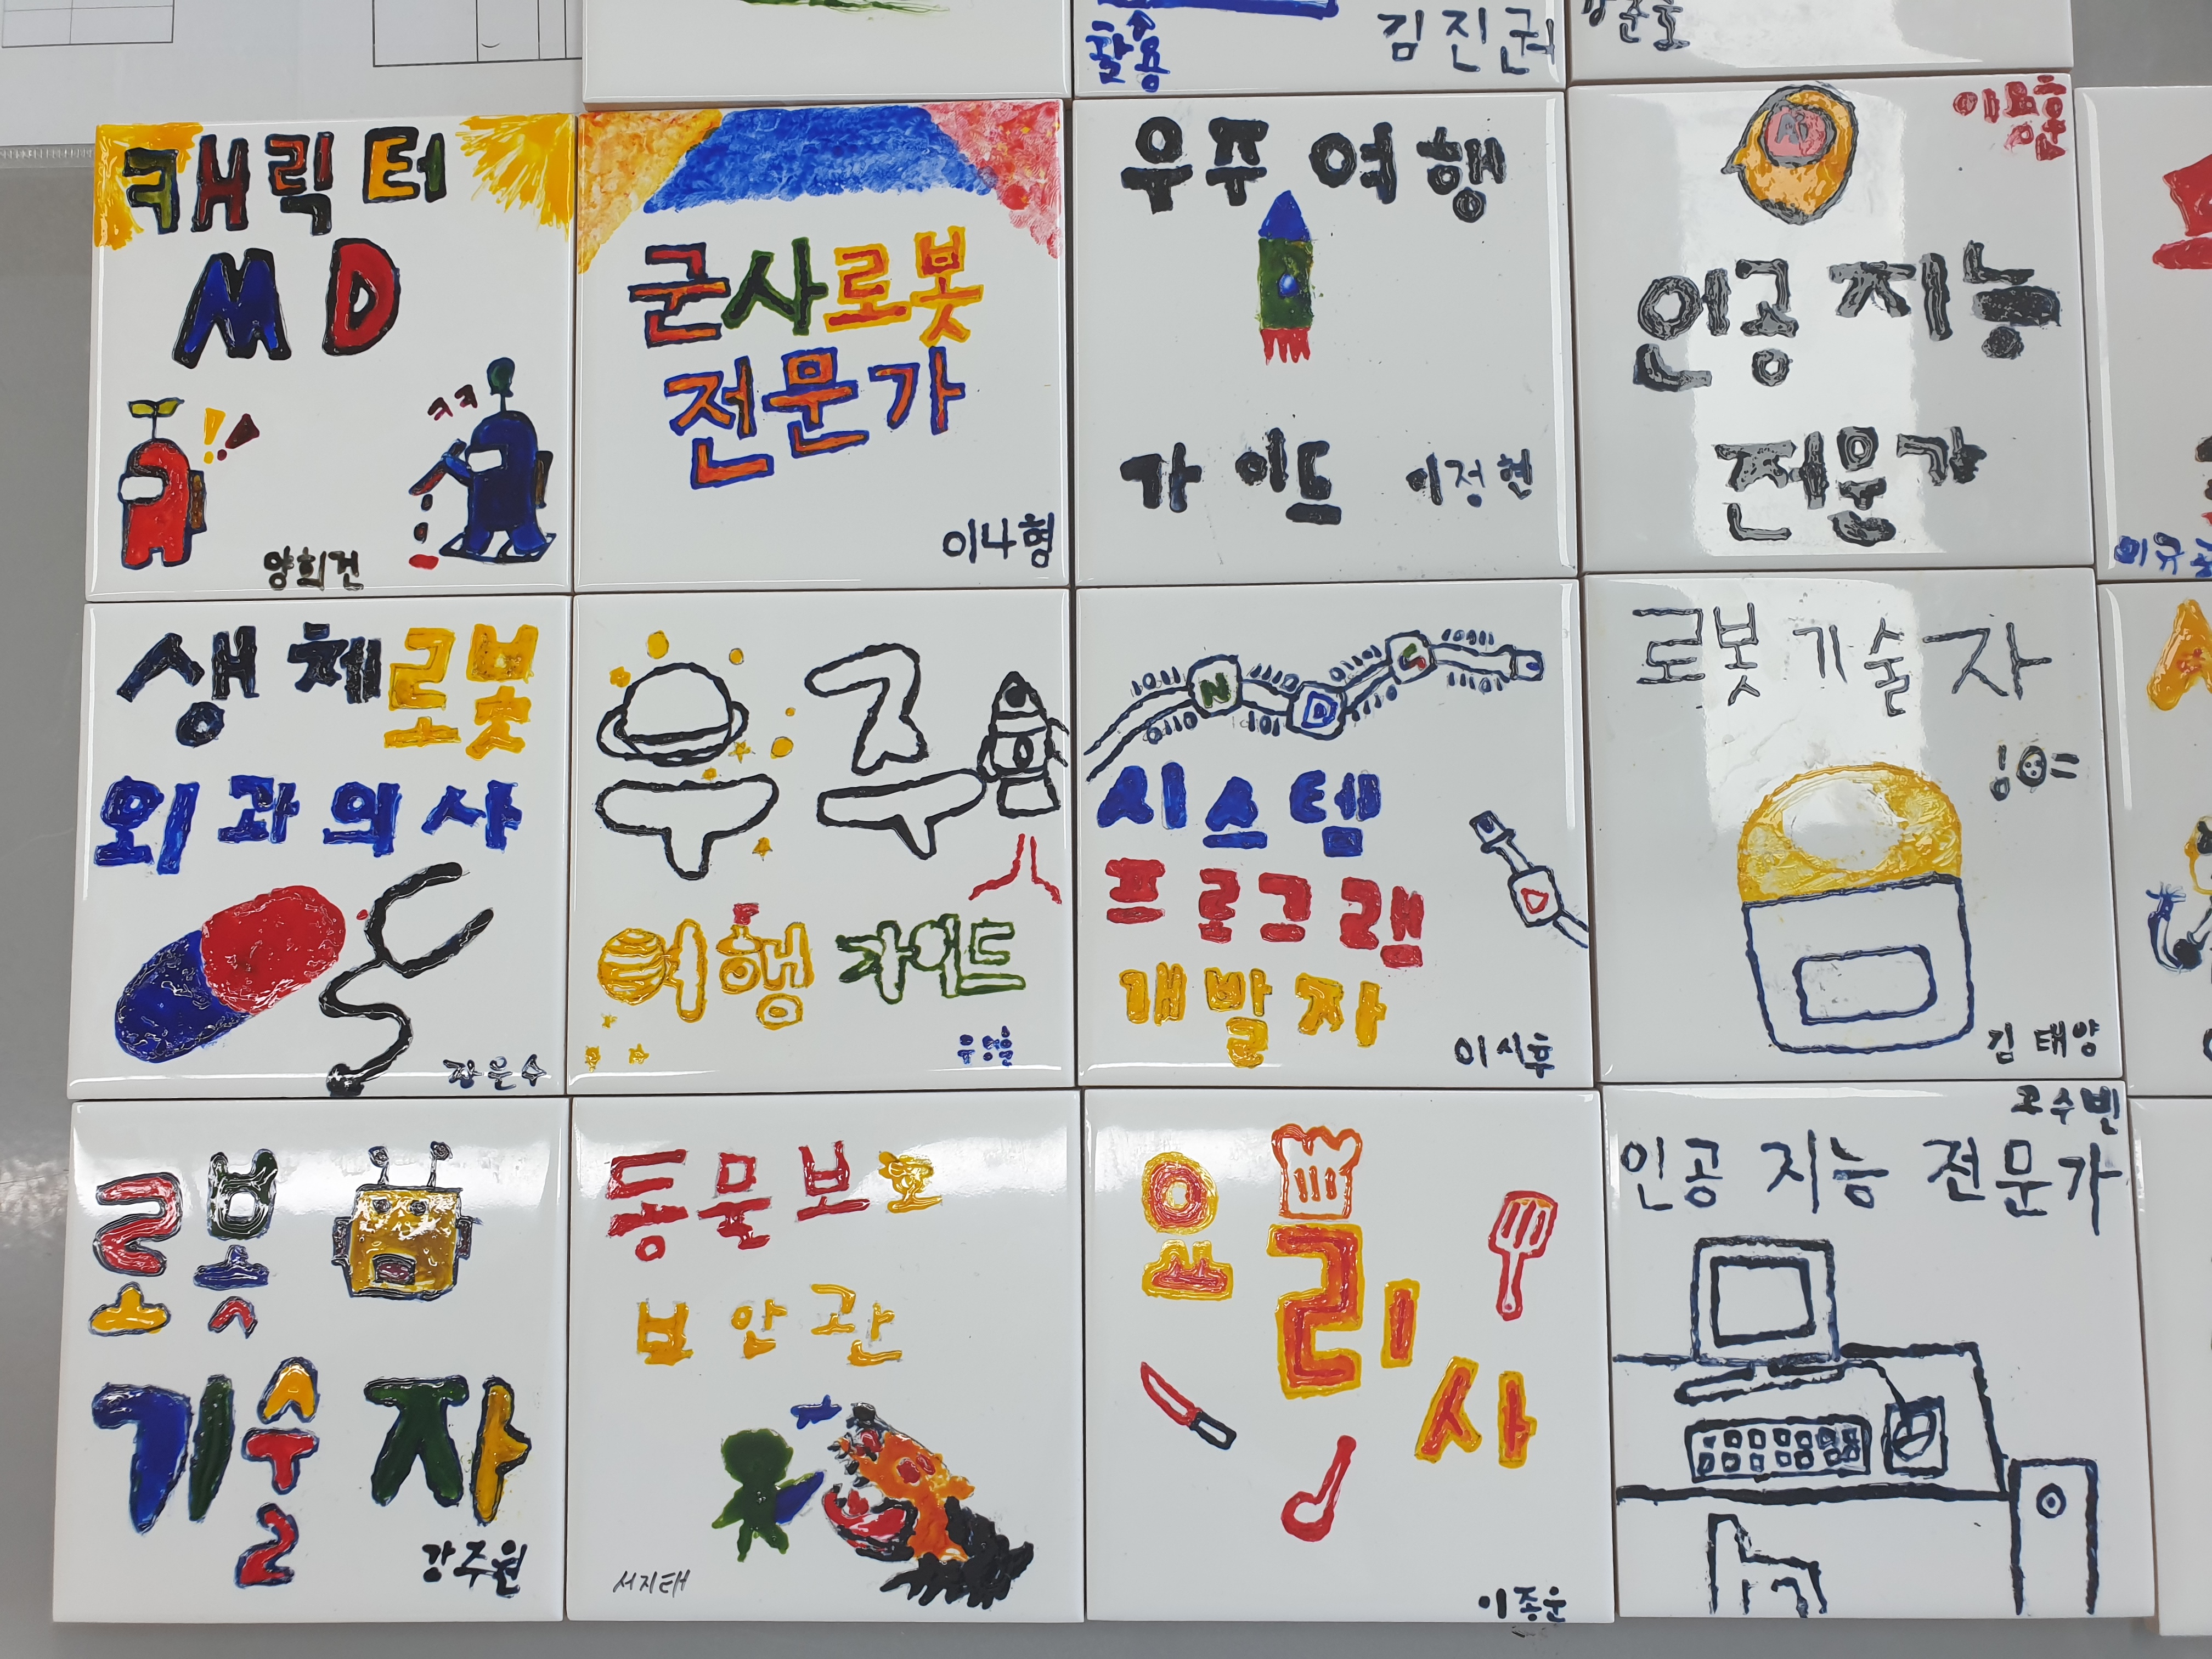 활용
김진권
캐릭터
MD
ㅋㅋ
양희건
군사로봇
전문가
이나형
우주여행
가이드
이정현
인공지능
전문가
생체로봇
외과의사
장은수
우주
여행 가이드
1011
0110
N
D
시스템
프로그램
개발자
D
이시후
로봇기술자
김태양
로봇
기술자
강주원
동물보호
보안관
서지태
요리사
이종운
수빈
인공지능 전문가